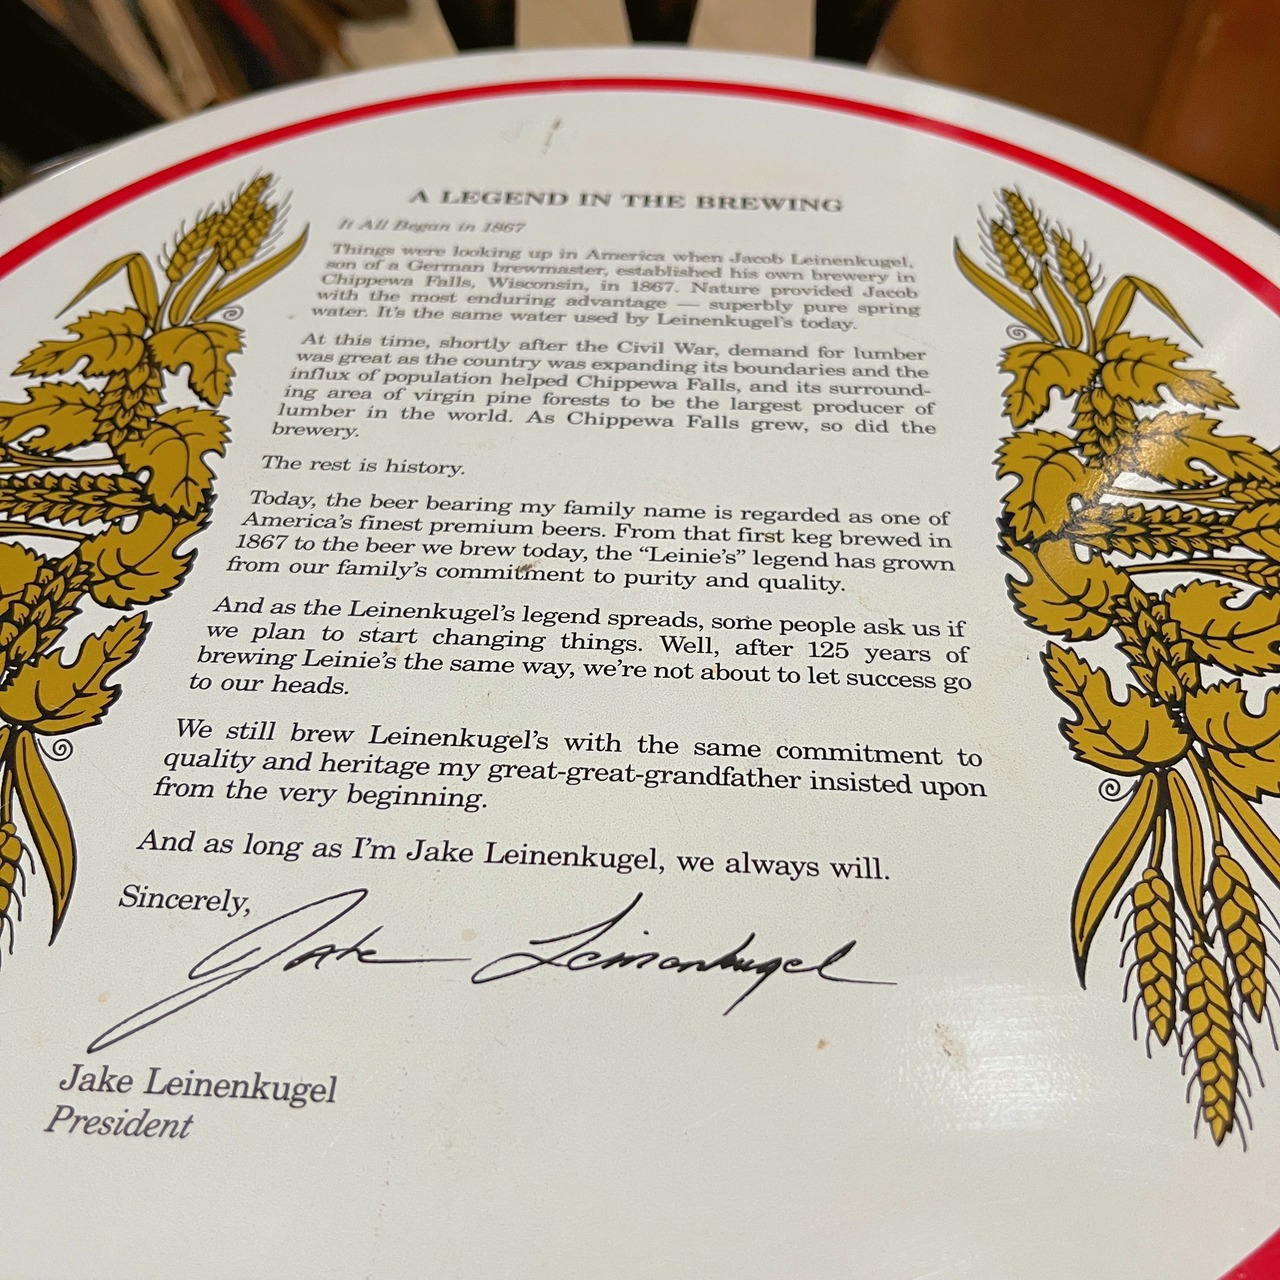 A LEGEND IN THE BREWING
It All Began in 1867
Things were looking up in America when Jacob Leinenkugel,
son of a German brewmaster, established his own brewery in
Chippewa Falls, Wisconsin, in 1867. Nature provided Jacob
with the most enduring advantage — superbly pure spring
water. It's the same water used by Leinenkugel's today.
At this time, shortly after the Civil War, demand for lumber
was great as the country was expanding its boundaries and the
influx of population helped Chippewa Falls, and its surround-
ing area of virgin pine forests to be the largest producer of
lumber in the world. As Chippewa Falls grew, so did the
brewery.
The rest is history.
Today, the beer bearing my family name is regarded as one of
America's finest premium beers. From that first keg brewed in
1867 to the beer we brew today, the “Leinie's” legend has grown
from our family's commitment to purity and quality.
And as the Leinenkugel's legend spreads, some people ask us if
we plan to start changing things. Well, after 125 years of
brewing Leinie's the same way, we're not about to let success go
to our heads.
We still brew Leinenkugel's with the same commitment to
quality and heritage my great-great-grandfather insisted upon
from the very beginning.
And as long as I'm Jake Leinenkugel, we always will.
Sincerely,
Jake Leinenkugel
Jake Leinenkugel
President